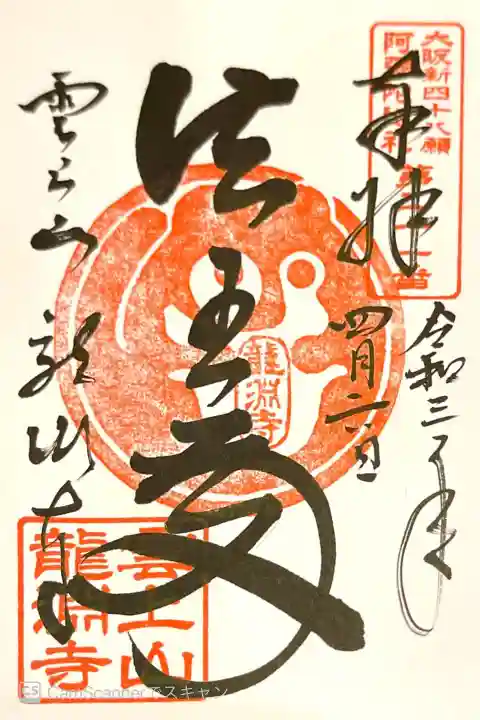 大阪新四十八願
阿弥陀巡礼 第二十一番
奉拝
令和三年
四月六日
法王殿
龍淵寺
雲上山 龍淵寺
雲上山
龍淵寺
CS CamScannerでスキャン